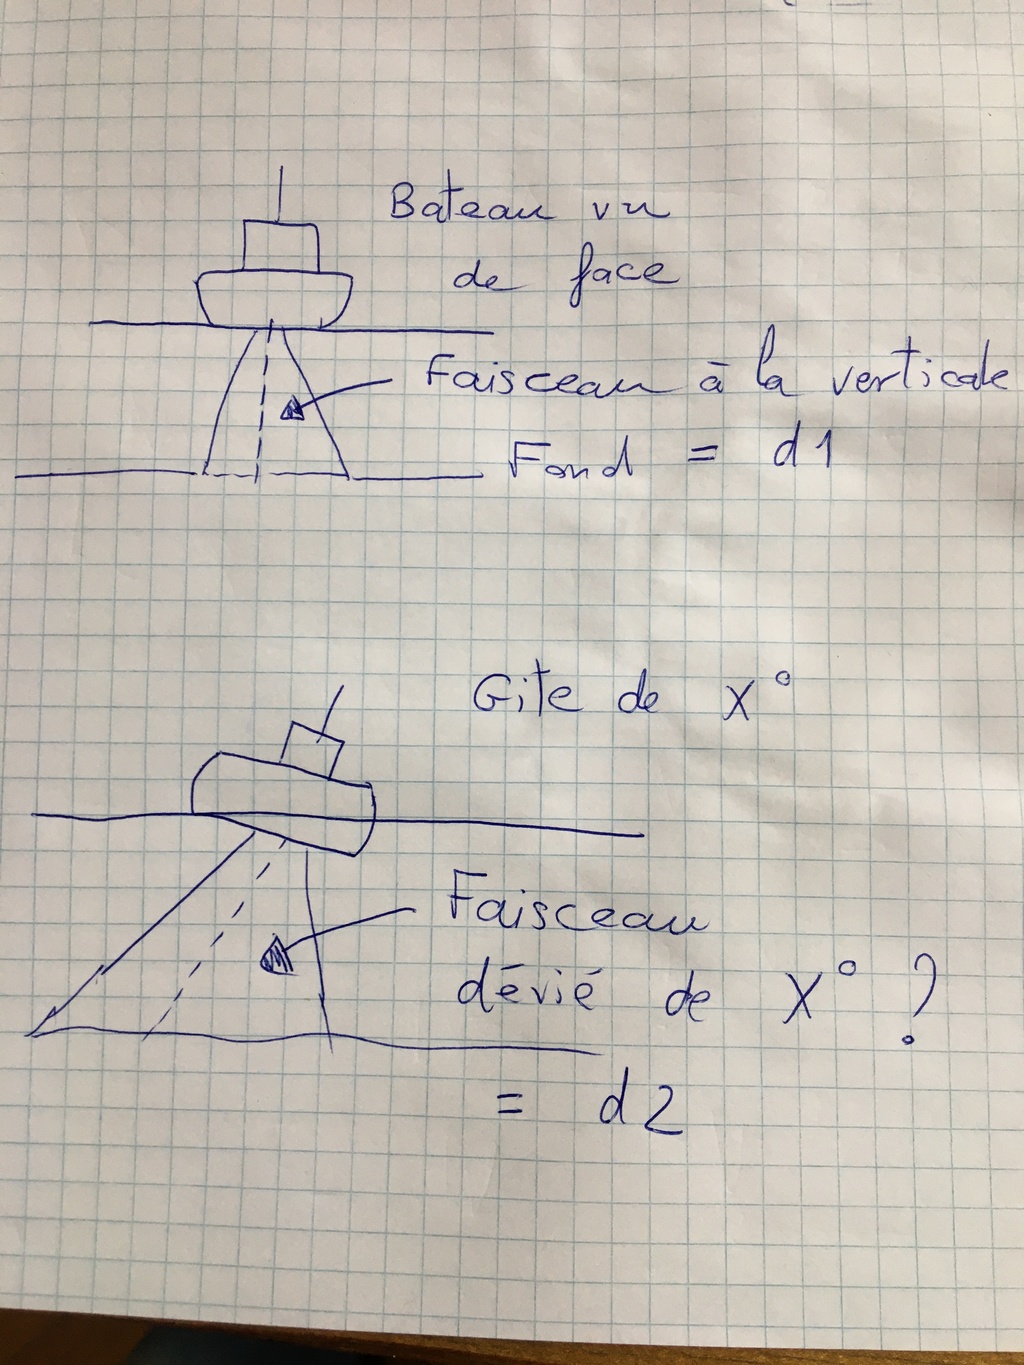 Bateau vu
de face
Faisceau à la verticale
Fond = d1
Gite de x°
Faisceau
dévié de x° ?
= d2